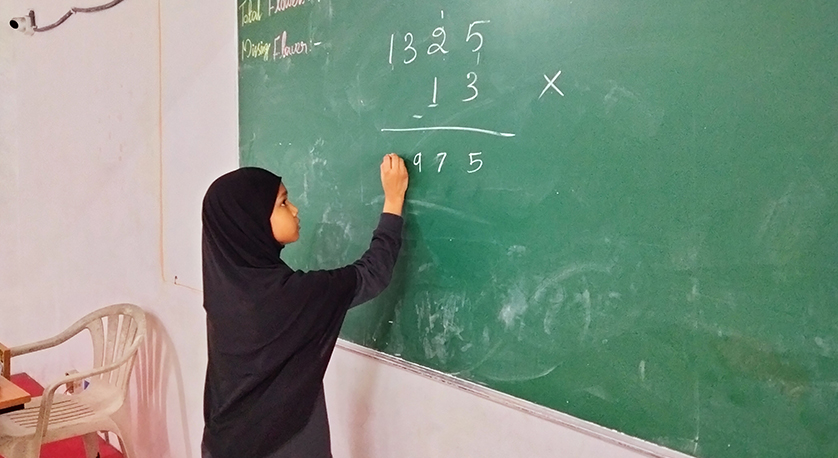 Total Flower:-
Missing Flower:-
1325
13 ×
975